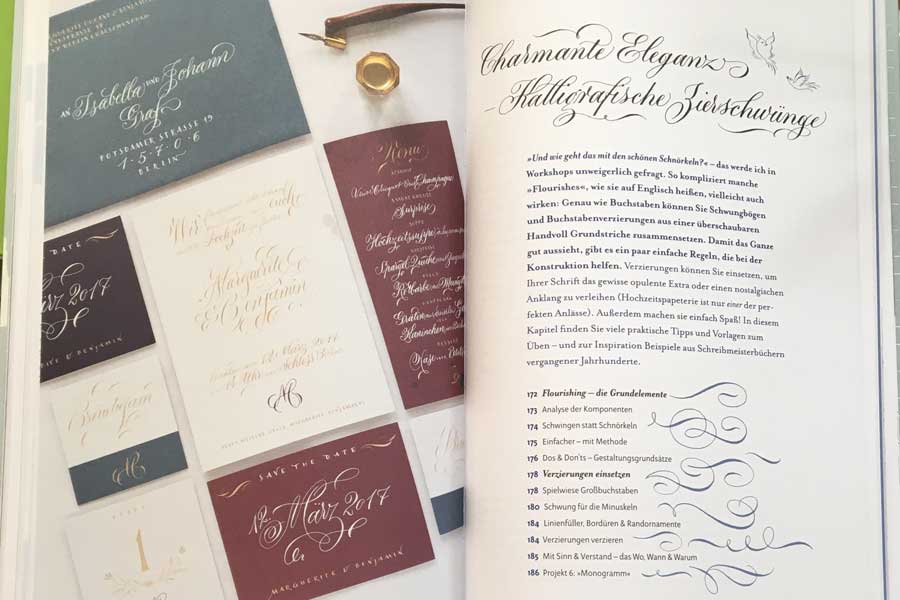 AN Isabella UND Johann
Graf
POTSDAMER STRASSE 19
1·5·7·0·6
BERLIN
DATE
März 2017
& BENJAMIN
Wir
Marguerite
& Benjamin
Menu
Surprise
1
SAVE THE DATE
12. März 2017
MARGUERITE & BENJAMIN
Charmante Eleganz
– Kalligrafische Zierschwünge
»Und wie geht das mit den schönen Schnörkeln?« – das werde ich in
Workshops unweigerlich gefragt. So kompliziert manche
»Flourishes«, wie sie auf Englisch heißen, vielleicht auch
wirken: Genau wie Buchstaben können Sie Schwungbögen
und Buchstabenverzierungen aus einer überschaubaren
Handvoll Grundstriche zusammensetzen. Damit das Ganze
gut aussieht, gibt es ein paar einfache Regeln, die bei der
Konstruktion helfen. Verzierungen können Sie einsetzen, um
Ihrer Schrift das gewisse opulente Extra oder einen nostalgischen
Anklang zu verleihen (Hochzeitspapeterie ist nur einer der per-
fekten Anlässe). Außerdem machen sie einfach Spaß! In diesem
Kapitel finden Sie viele praktische Tipps und Vorlagen zum
Üben – und zur Inspiration Beispiele aus Schreibmeisterbüchern
vergangener Jahrhunderte.
172 Flourishing – die Grundelemente
173 Analyse der Komponenten
174 Schwingen statt Schnörkeln
175 Einfacher – mit Methode
176 Dos & Don'ts – Gestaltungsgrundsätze
178 Verzierungen einsetzen
178 Spielwiese Großbuchstaben
180 Schwung für die Minuskeln
184 Linienfüller, Bordüren & Randornamente
184 Verzierungen verzieren
185 Mit Sinn & Verstand – das Wo, Wann & Warum
186 Projekt 6: »Monogramm«